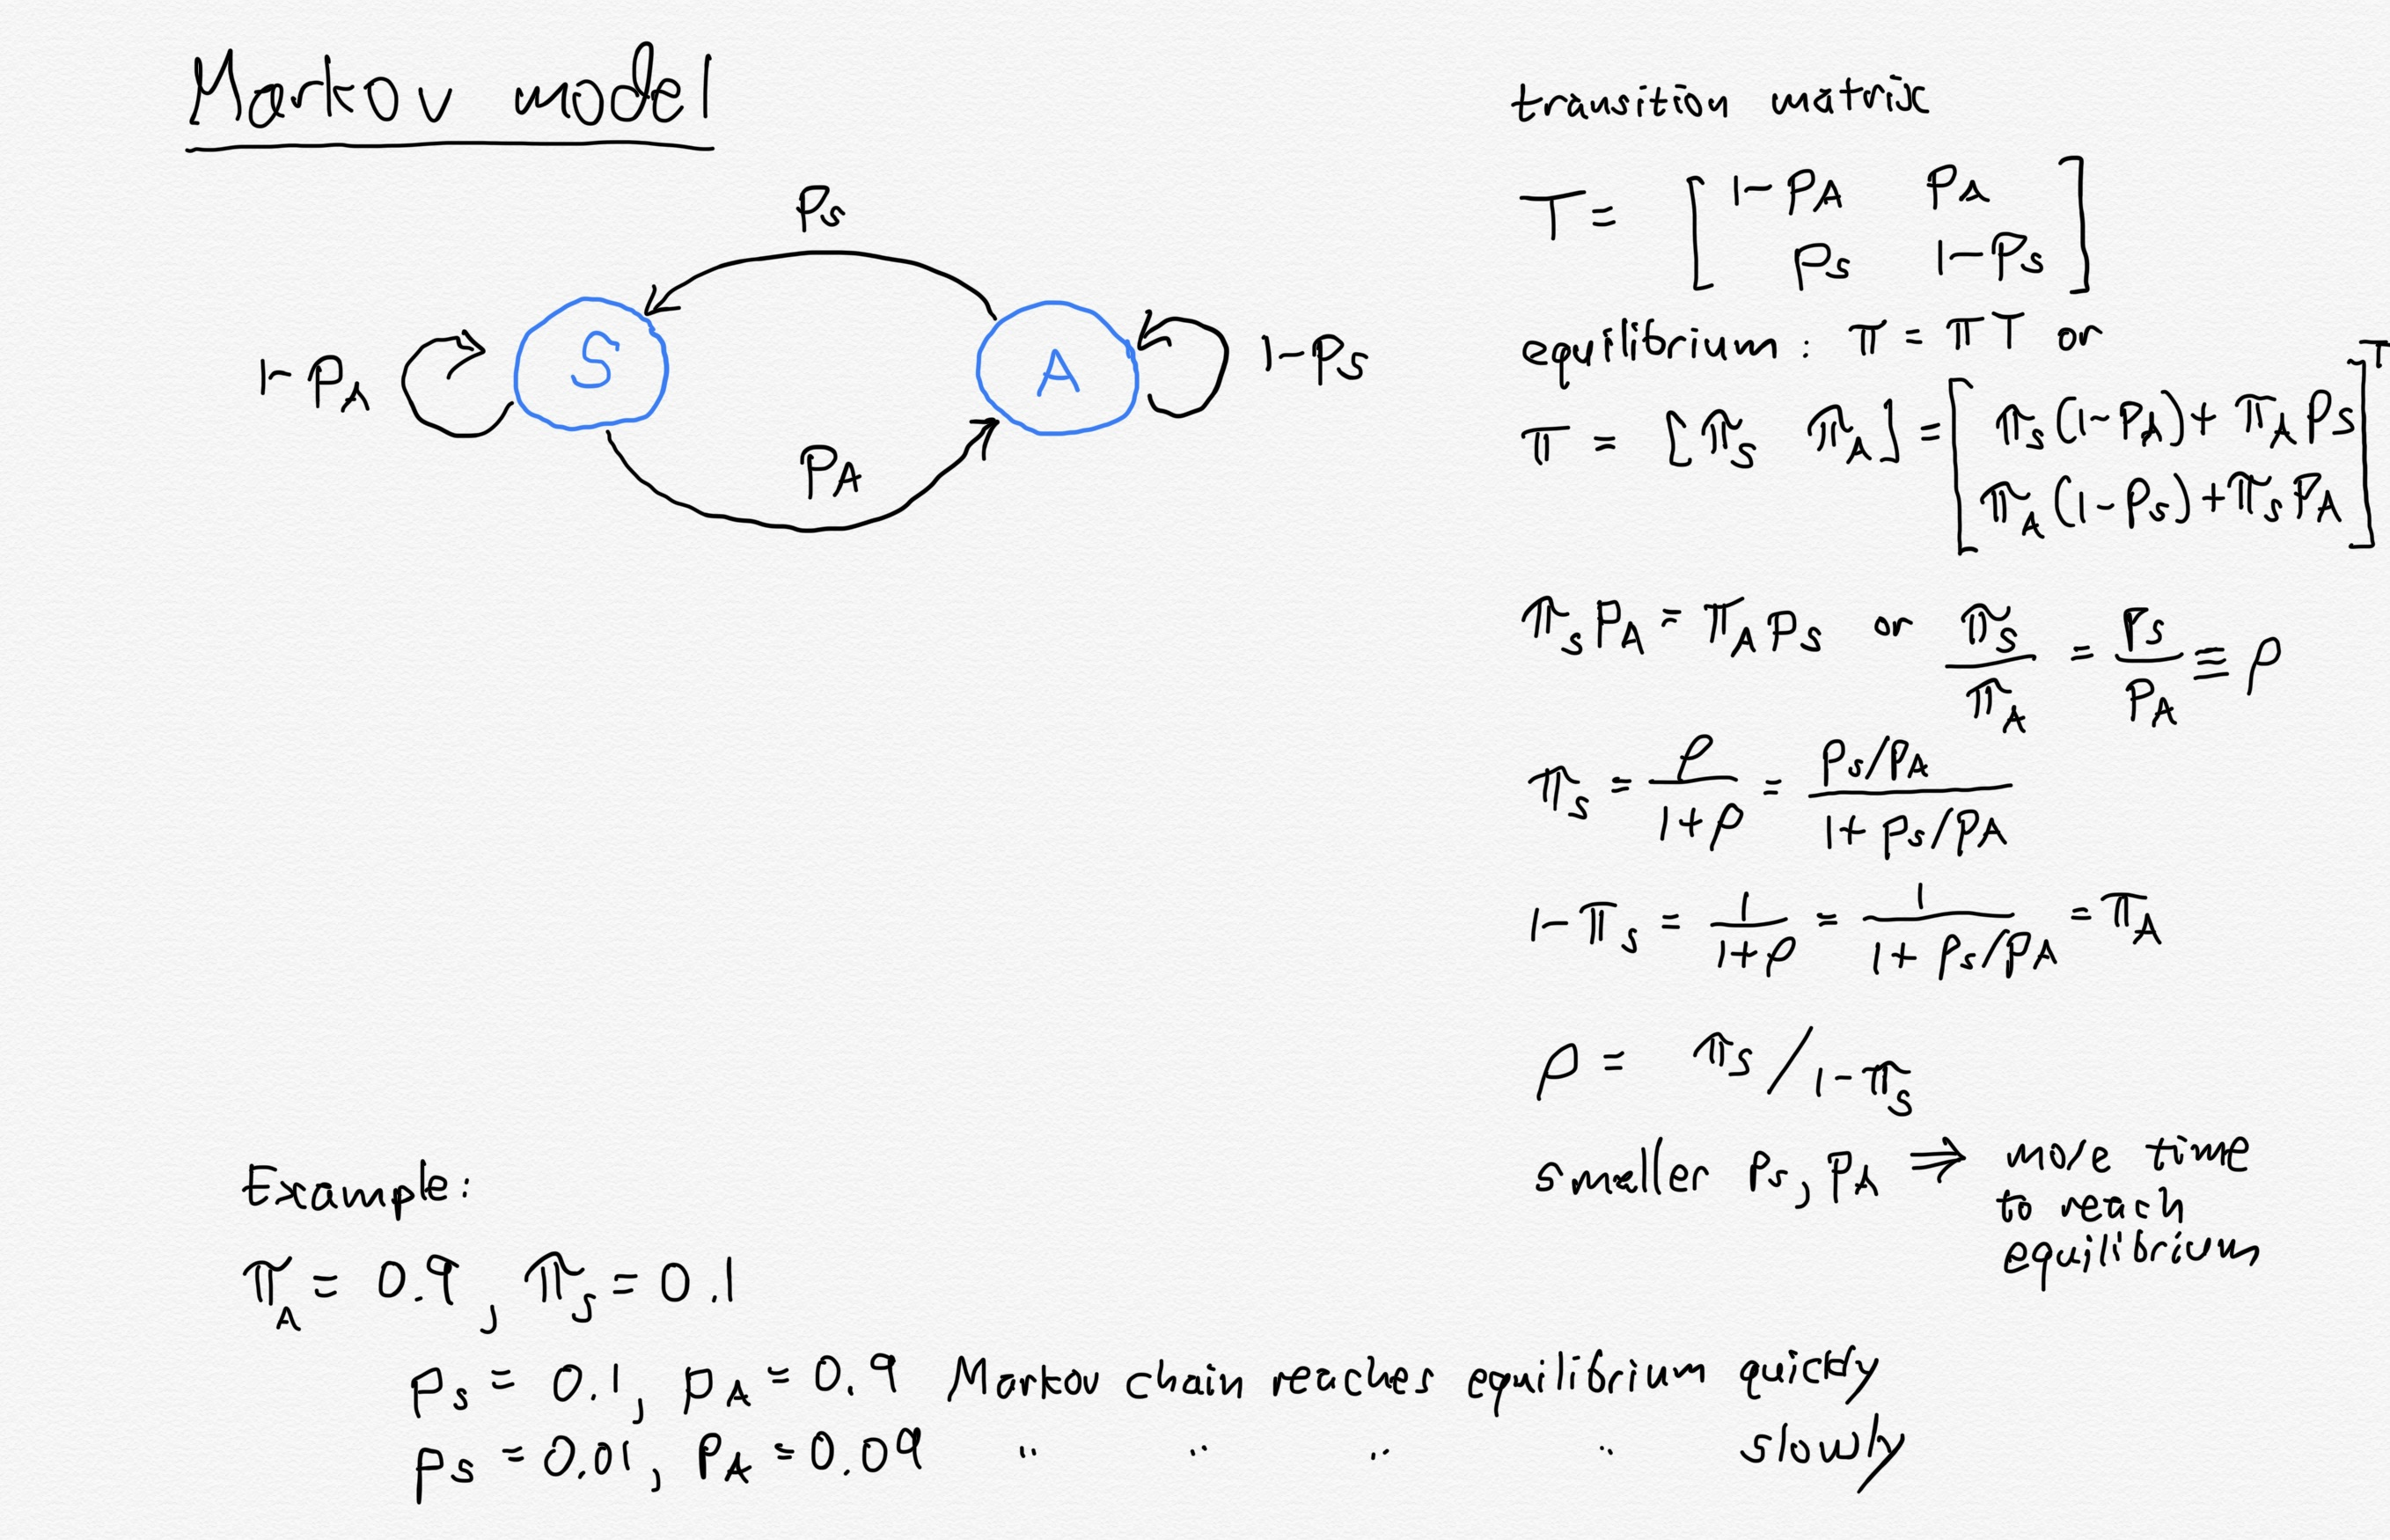 Markov model
Ps
S
A
1-PA
1-Ps
PA
transition matrix
T = [ 1-PA PA
Ps 1-Ps ]
equilibrium: π = πT or
π = [πs πA] = [ πs(1-PA) + πA Ps
πA(1-Ps) + πs PA ]^T
πs PA = πA Ps or πs/πA = Ps/PA ≡ ρ
πs = ρ/(1+ρ) = (Ps/PA)/(1+Ps/PA)
1-πs = 1/(1+ρ) = 1/(1+Ps/PA) = πA
ρ = πs/1-πs
smaller Ps, PA ⇒ more time
to reach
equilibrium
Example:
πA = 0.9, πs = 0.1
Ps = 0.1, PA = 0.9 Markov chain reaches equilibrium quickly
Ps = 0.01, PA = 0.09 " " " " slowly